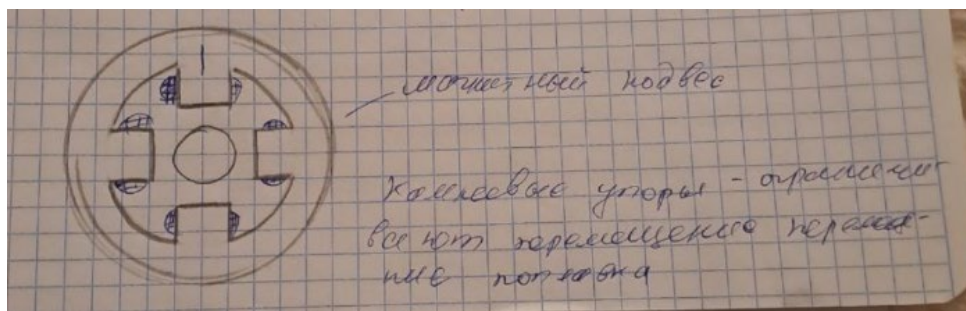 магнитный подвес
Камневые упоры - ограничи-
вают перемещение
поплавка